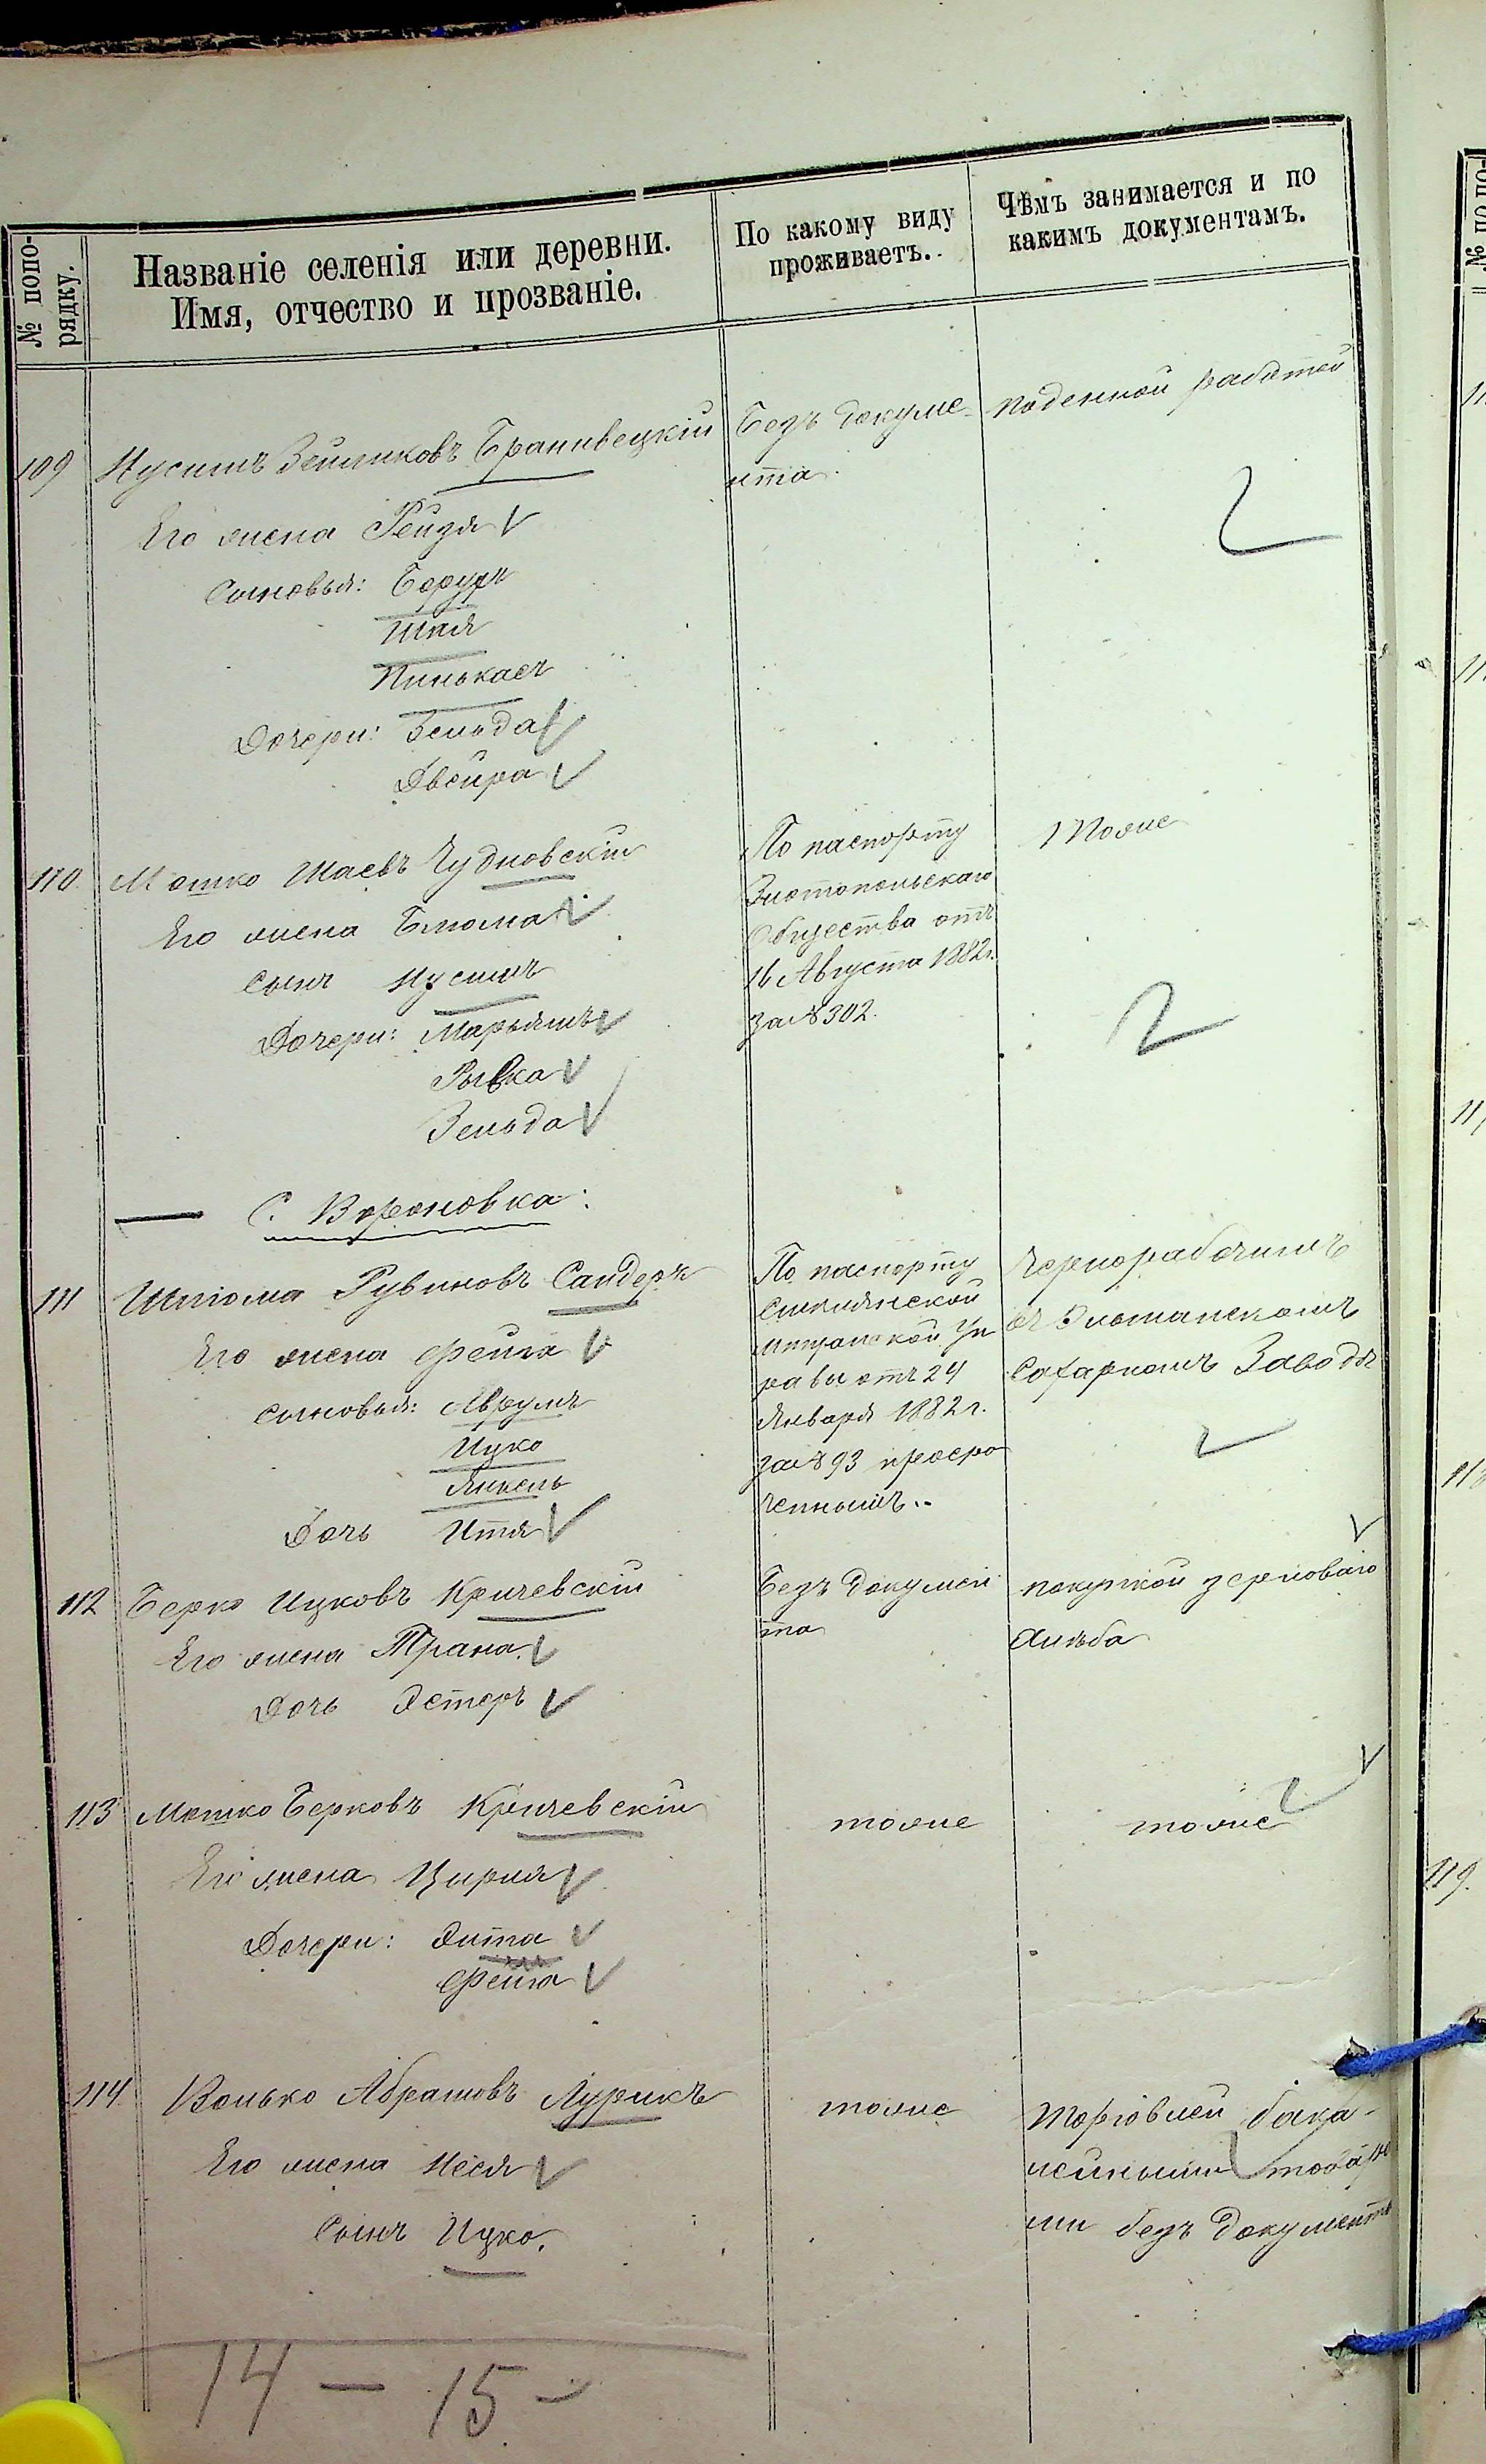 № попо-
рядку.
Названіе селенія или деревни.
Имя, отчество и прозваніе.
По какому виду
проживаетъ.
Чѣмъ занимается и по
какимъ документамъ.
109 Нусимъ Зейликовъ Бранивецкій
Его жена Рейзя
Сыновья: Борухъ
Шая
Пинькасъ
Дочери: Зельда
Двейра
Безъ докуме-
нта
поденной работой
110 Мошко Шаевъ Чудновскій
Его жена Блюма
Сынъ Нусимъ
Дочери: Марьямъ
Рывка
Зельда
По паспорту
Златопольскаго
Общества отъ
16 Августа 1882 г.
за № 302.
Тоже
С. Вороновка:
111 Шлема Рувиновъ Сандеръ
Его жена Фейга
Сыновья: Аврумъ
Ицко
Янкель
Дочь Итя
По паспорту
Смелянской
Мѣщанской Уп
равы отъ 24
Января 1882 г.
за № 93 просро
ченнымъ..
Чернорабочимъ
въ
Сахарномъ Заводѣ
112 Берко Ицковъ Кричевскій
Его жена Трана.
Дочь Эстеръ
Безъ докумен
та
покупкой зерноваго
хлѣба
113 Мошко Берковъ Кричевскій
Его жена Цирля
Дочери: Элта
Фейга
тоже
тоже
114 Волько Абрамовъ Лурикъ
Его жена Неся
Сынъ Ицко.
тоже
Торговлей бака-
лейными товара
ми безъ документъ
14 — 15 -